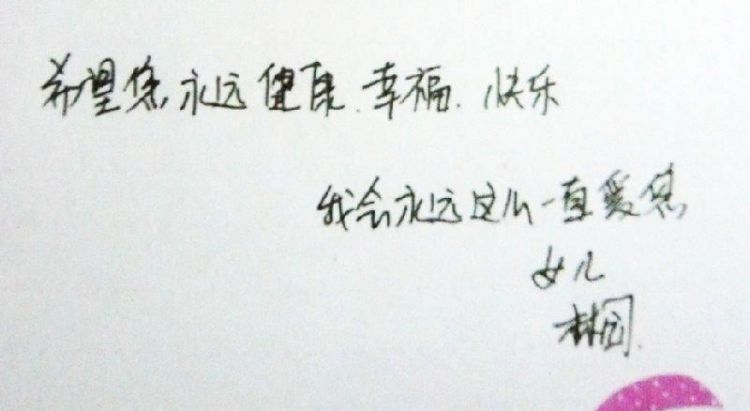 希望您永远健康.幸福.快乐
我会永远这么一直爱您
女儿